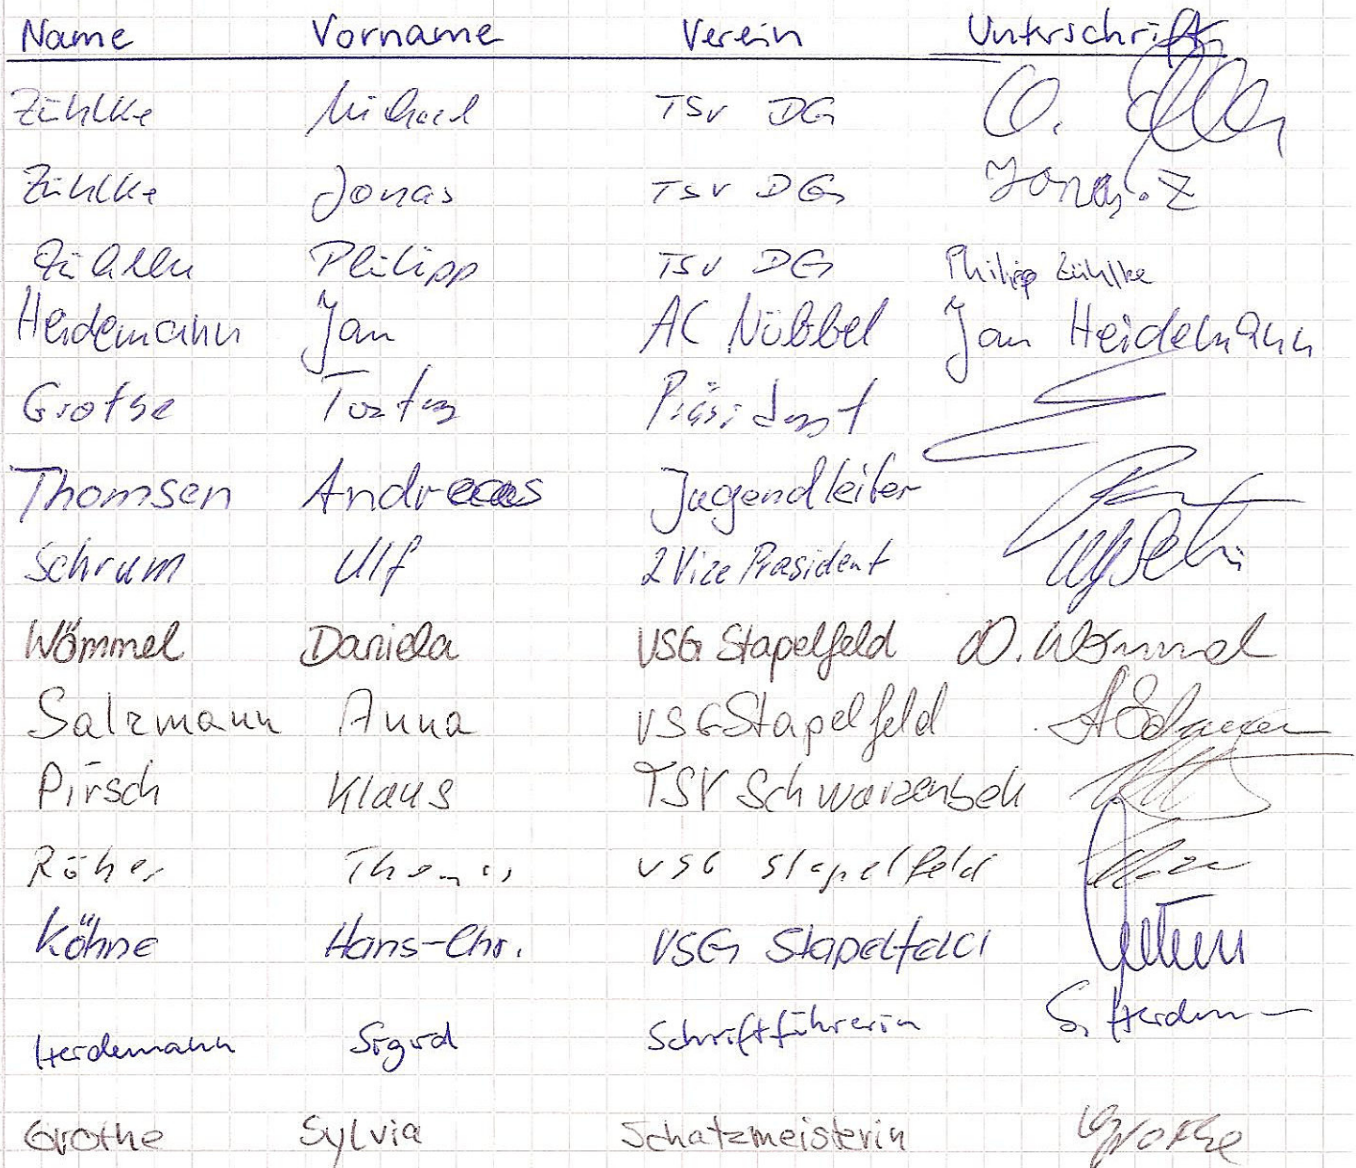 Name Vorname Verein Unterschrift
Zühlke Michael TSV DG
Zühlke Jonas TSV DG Jonas. Z
Zühlke Philipp TSV DG Philipp Zühlke
Heidemann Jan AC Nübbel Jan Heidemann
Grothe Torsten Präsident
Thomsen Andreas Jugendleiter
Schrum Ulf 2 Vice Präsident
Wömmel Daniela VSG Stapelfeld D. Wömmel
Salzmann Anna VSG Stapelfeld
Pirsch Klaus TSV Schwarzenbek
Röher Thomas VSG Stapelfeld
Köhne Hans-Chr. VSG Stapelfeld
Heidemann Sigrid Schriftführerin S. Heidem
Grothe Sylvia Schatzmeisterin Grothe